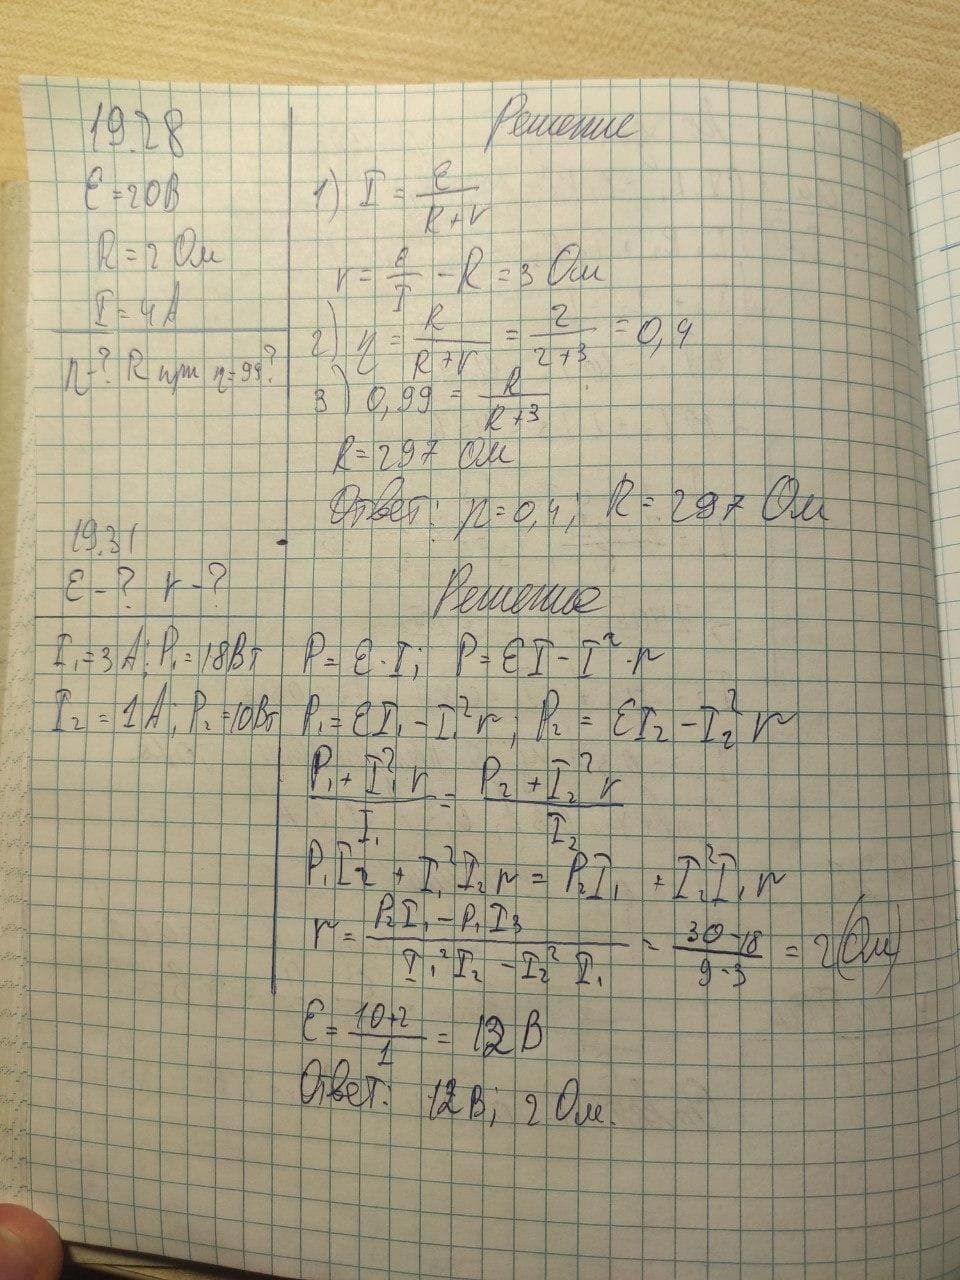 19.28
Решение
ε = 20В
R = 2 Ом
I = 4А
η-? R при η=99?
1) I = ε/(R+r)
r = ε/I - R = 3 Ом
2) η = R/(R+r) = 2/(2+3) = 0,4
3) 0,99 = R/(R+3)
R = 297 Ом
Ответ: η=0,4; R = 297 Ом
19.31
ε-? r-?
Решение
I₁=3А; P₁=18Вт
I₂=1А; P₂=10Вт
P = ε·I; P = εI - I²·r
P₁=εI₁ - I₁²r; P₂ = εI₂ - I₂²r
(P₁ + I₁²r)/I₁ = (P₂ + I₂²r)/I₂
P₁I₂ + I₁²I₂r = P₂I₁ + I₂²I₁r
r = (P₂I₁ - P₁I₃)/(I₁²I₂ - I₂²I₁) = (30-18)/(9-3) = 2(Ом)
ε = (10+2)/1 = 12В
Ответ: 12В; 2 Ом.